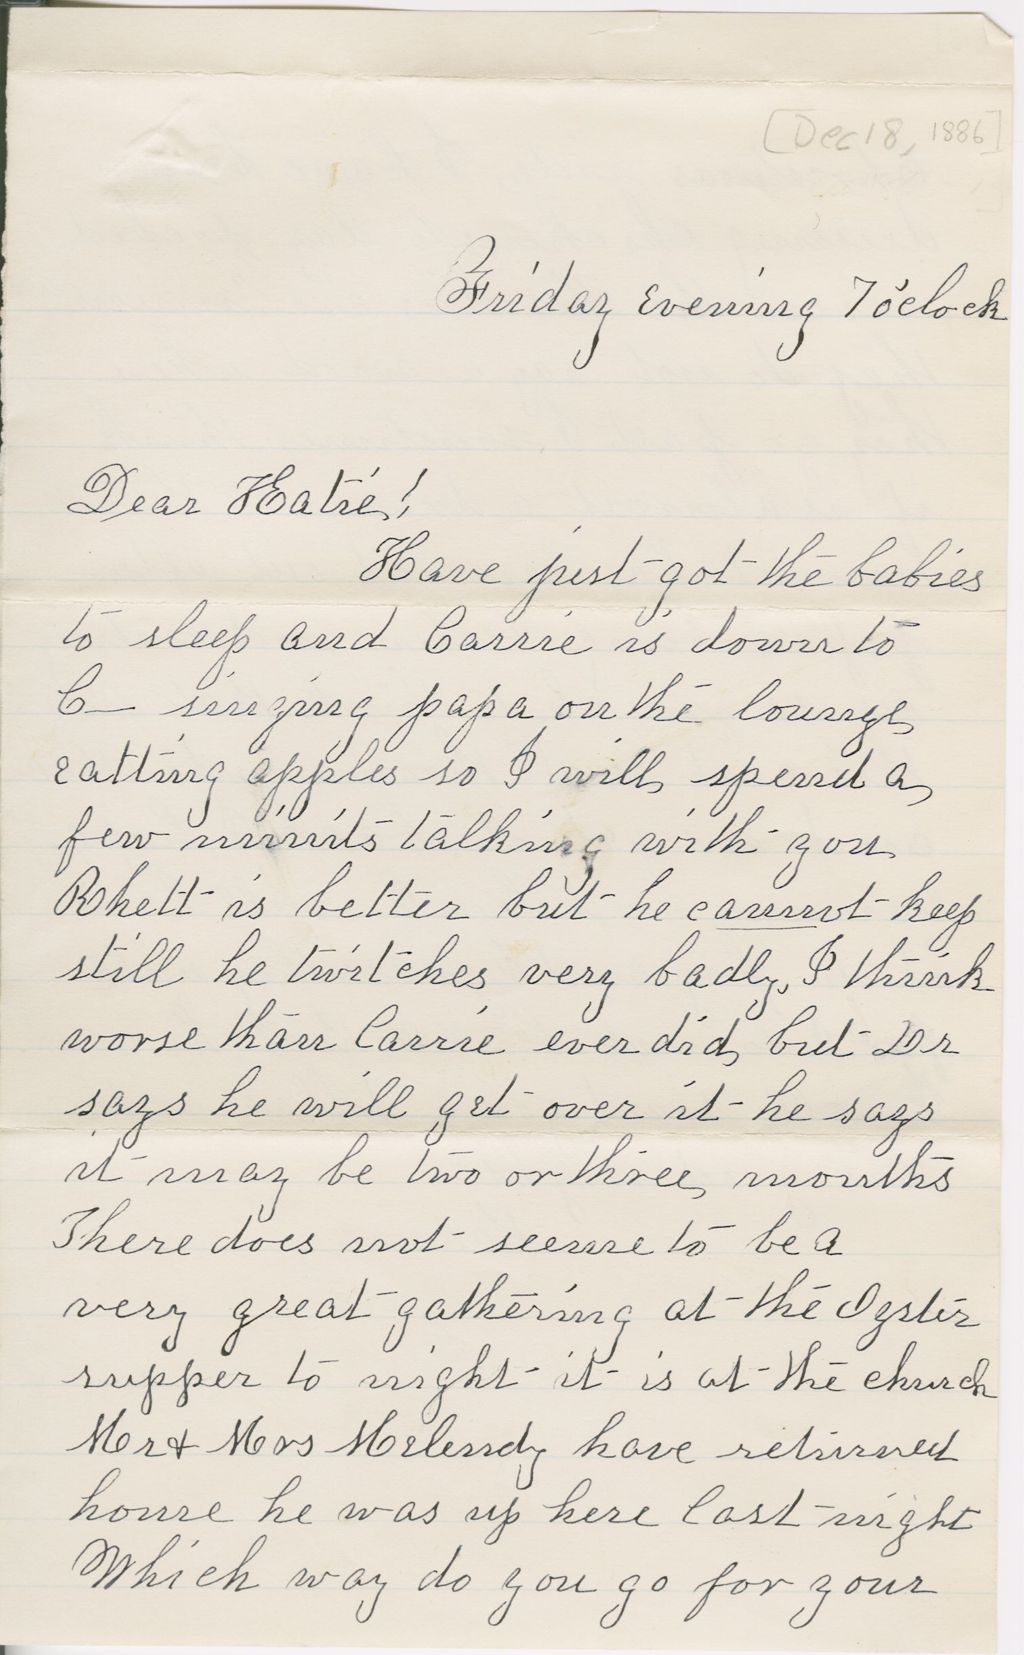 [Dec 18, 1886]
Friday Evening 7 o'clock
Dear Hatie!
Have just got the babies
to sleep and Carrie is down to
C— singing papa on the lounge
eatting apples so I will spend a
few minits talking with you
Rhett is better but he cannot keep
still he twitches very badly, I think
worse than Carrie ever did, but Dr
says he will get over it he says
it may be two or three months
There does not seeme to be a
very great gathering at the Oyster
supper to night it is at the church
Mr & Mrs Melendy have returned
home he was up here last night
Which way do you go for your